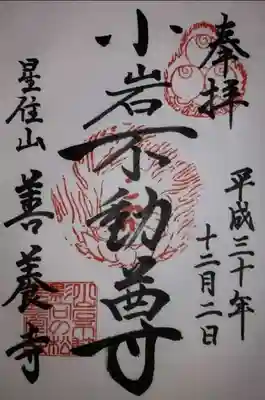 奉拝
平成三十年
十二月二日
小岩不動尊
星住山
善養寺